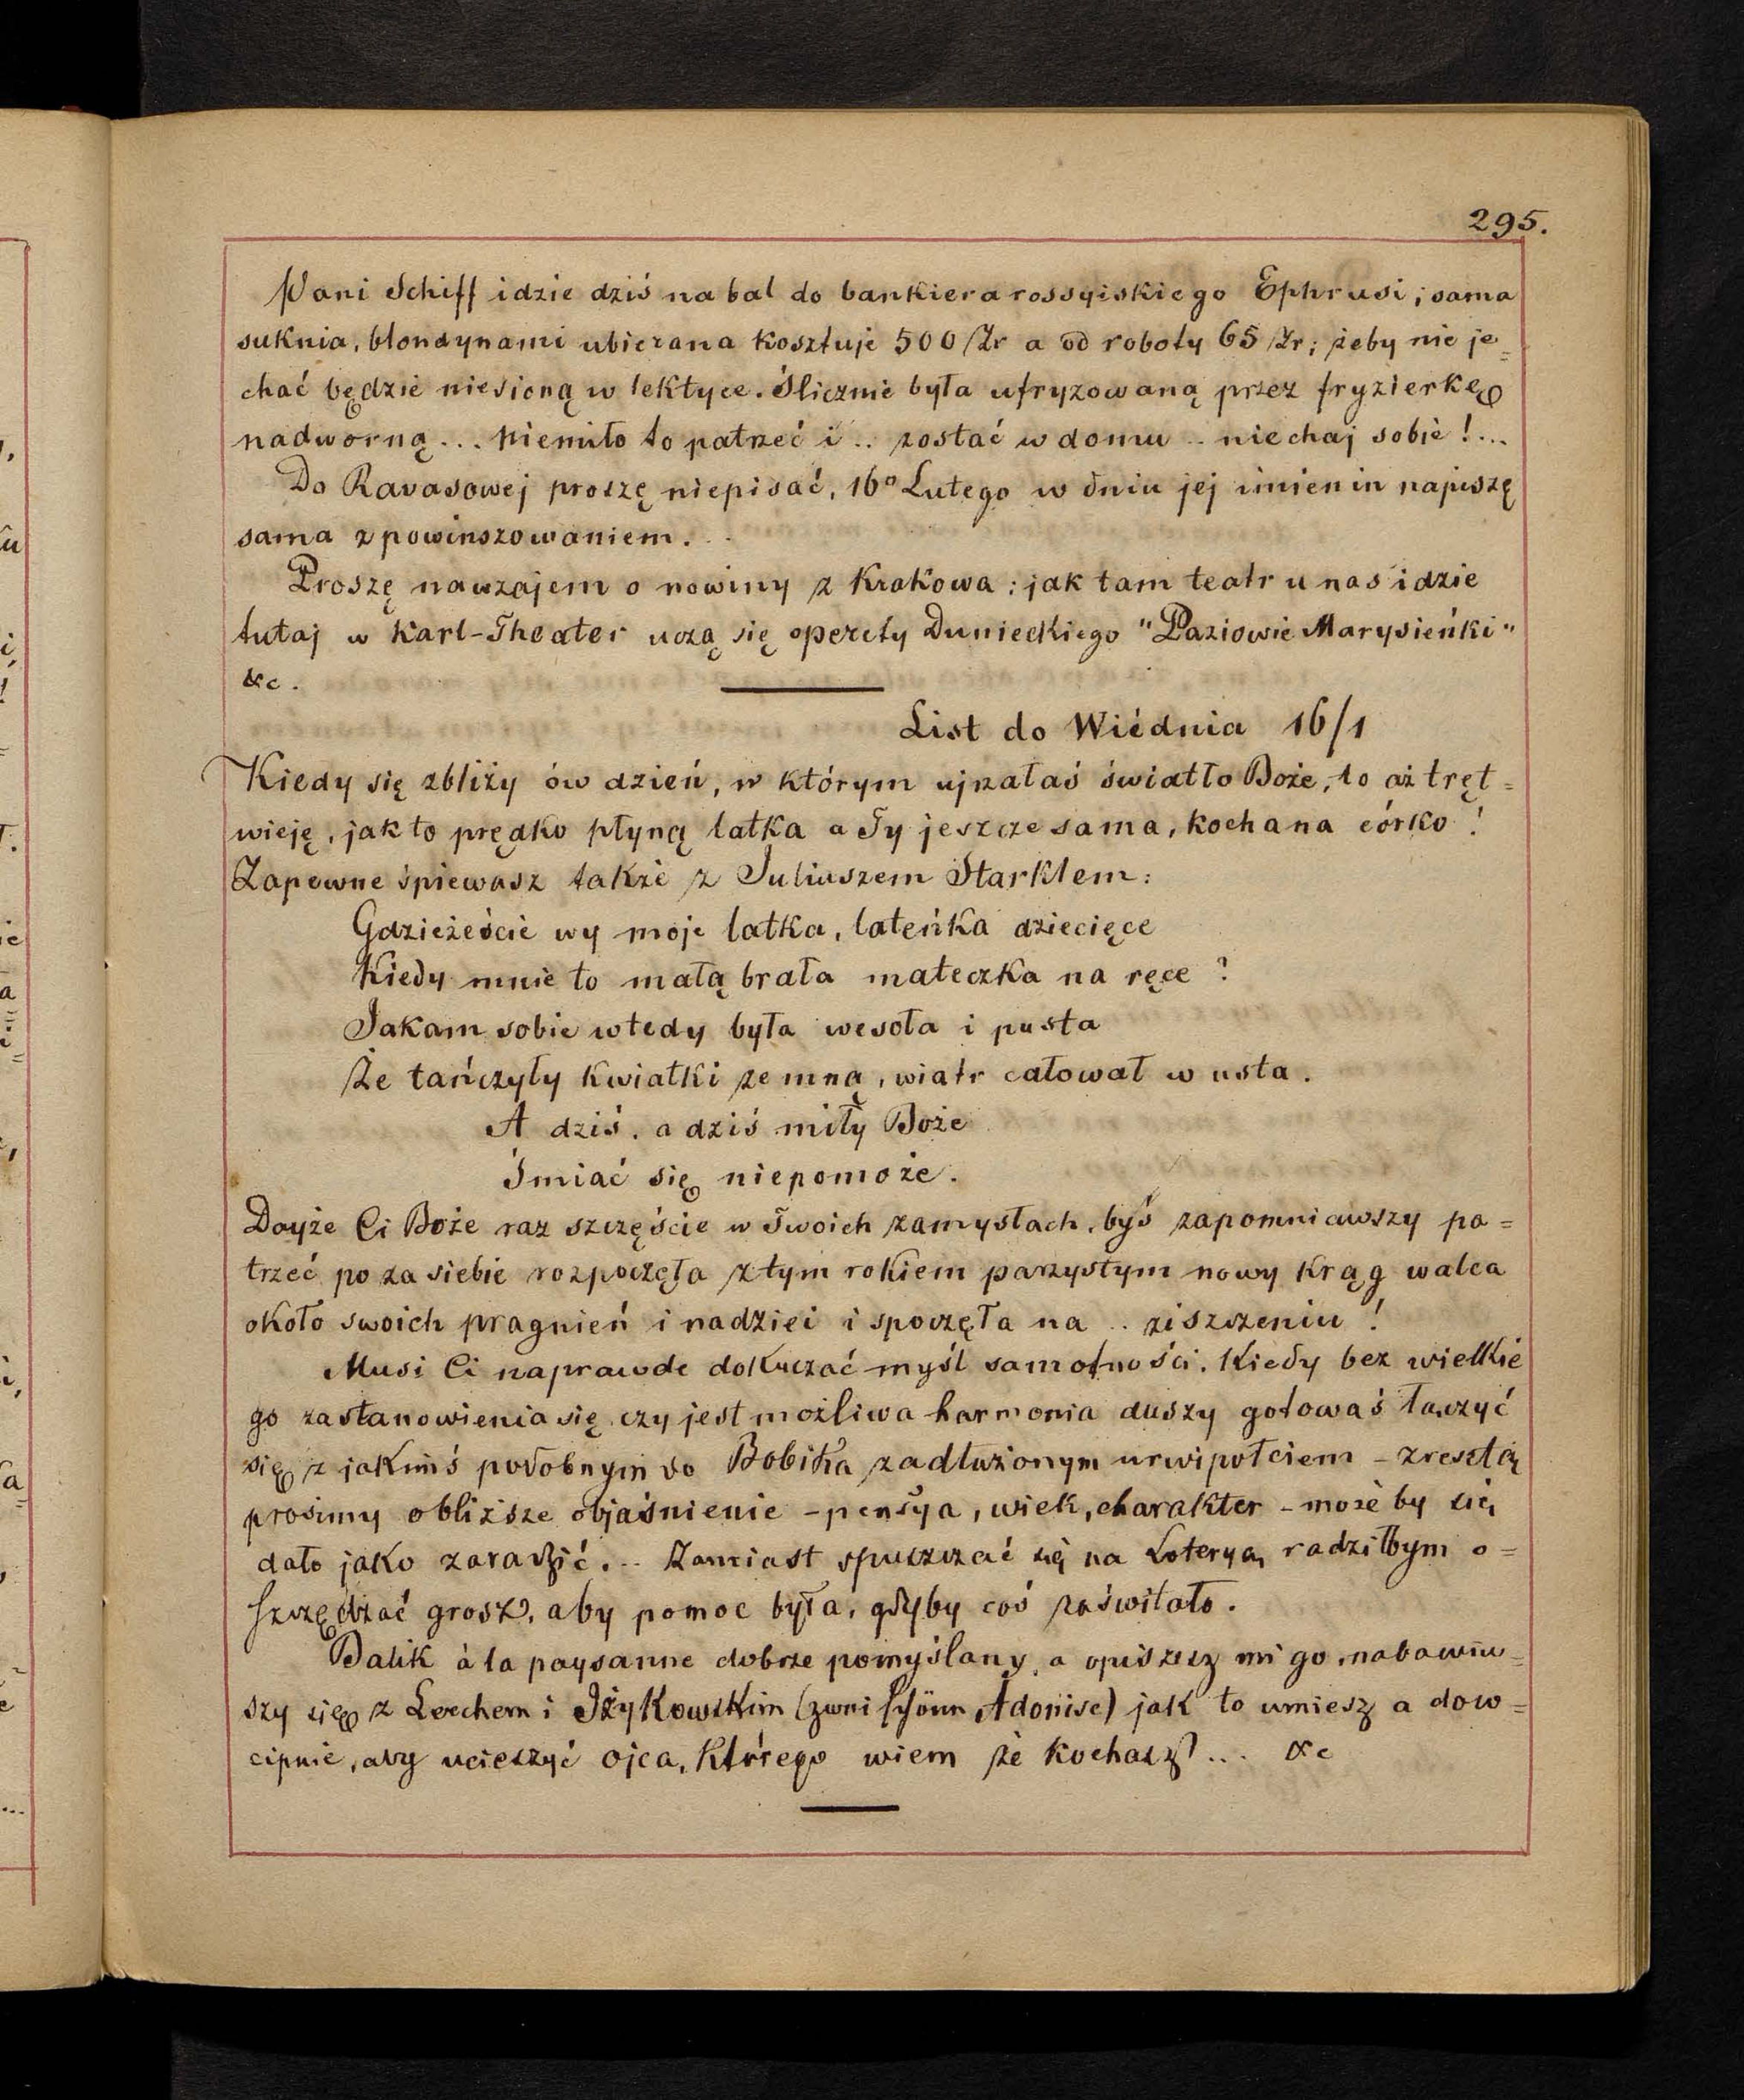 295.
Pani Schiff idzie dziś na bal do bankiera rossyiskiego Ephrusi; sama
suknia, blondynami ubierana kosztuje 500 Zr a od roboty 65 Zr; żeby nie je=
chać będzie niesioną w lektyce. Ślicznie była ufryzowaną przez fryzierkę
nadworną... niemiło to patrzeć i.. zostać w domu .. niechaj sobie!...
Do Ravasowej proszę niepisać, 16º Lutego w dniu jej imienin napiszę
sama z powinszowaniem...
Proszę nawzajem o nowiny z Krakowa: jak tam teatr u nas idzie
tutaj w Karl-Theater uczą się operety Dunieckiego "Paziowie Marysieńki"
&c.
List do Wiédnia 16/1
Kiedy się zbliży ów dzień, w którym ujrzałaś światło Boże, to aż tręt=
wieję, jak to prędko płyną latka a Ty jeszcze sama, kochana córko!
Zapewne śpiewasz także z Juliuszem Starklem:
Gdzieżeście wy moje latka, lateńka dziecięce
Kiedy mnie to małą brała mateczka na ręce?
Jakam sobie wtedy była wesoła i pusta
Że tańczyły kwiatki ze mną, wiatr całował w usta.
A dziś, a dziś miły Boże
Śmiać się niepomoże.
Dayże Ci Boże raz szczęście w Twoich zamysłach, byś zapomniawszy pa=
trzeć po za siebie rozpoczęła z tym rokiem parzystym nowy krąg walca
około swoich pragnień i nadziei i spoczęła na .. ziszczeniu!
Musi Ci naprawde dokuczać myśl samotności. Kiedy bez wielkie
go zastanowienia się, czy jest możliwa harmonia duszy gotowaś łączyć
się z jakimś podobnym do Bobika zadłużonym urwipołciem - zresztą
prosimy o bliższe objaśnienie - pensya, wiek, charakter - może by się
dało jako zaradzić... Zamiast spuszczać się na Loteryą, radziłbym o=
szczędzać grosz, aby pomoc była, gdyby coś zaświtało.
Balik à la paysanne dobrze pomyślany, a opiszesz mi go, nabawiw=
szy się z Lerchem i Iżykowskim (zwei schöne Adonise) jak to umiesz a dow=
cipnie, aby ucieszyć ojca, którego wiem że kochasz... &c